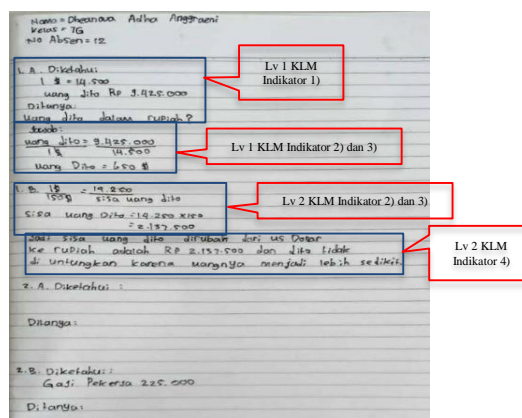 Nama = Dheanova Adha Anggraeni
Kelas = 7G
No Absen = 12
1. A. Diketahui
1 $ = 14.500
uang dito Rp 9.425.000
Ditanya:
Uang dito dalam rupiah?
Jawab:
uang dito = 9.425.000
1$ 14.500
uang Dito = 650 $
1. B. 1$ = 14.250
150$ sisa uang dito
sisa uang Dito = 14.250 x 150
= 2.137.500
Jadi sisa uang dito dirubah dari us Dolar
ke rupiah adalah RP 2.137.500 dan dito tidak
di untungkan karena uangnya menjadi lebih sedikit.
2. A. Diketahui :
Ditanya:
2. B. Diketahui :
Gaji Pekerja 225.000
Ditanya:
Lv 1 KLM
Indikator 1)
Lv 1 KLM Indikator 2) dan 3)
Lv 2 KLM Indikator 2) dan 3)
Lv 2 KLM
Indikator 4)